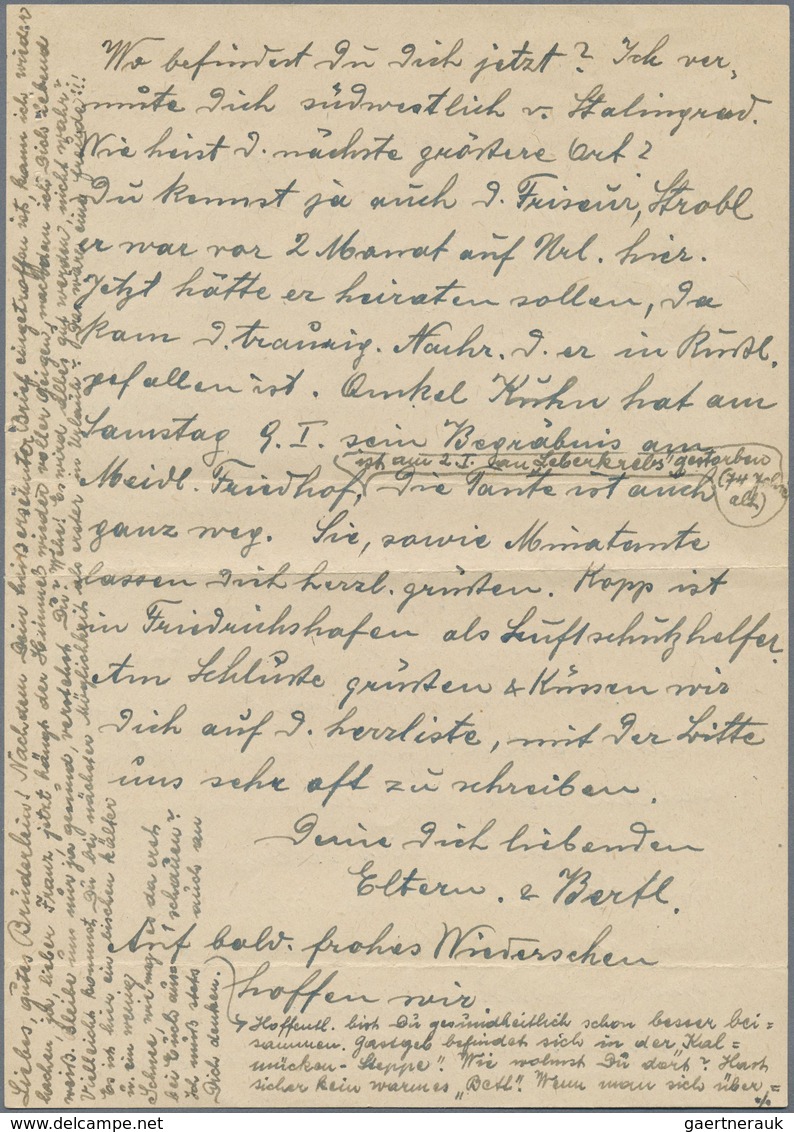 Wo befindest Du Dich jetzt? Ich ver-
mute Dich südwestlich v. Stalingrad.
Wie heist d. nächste größere Ort?
Du kennst ja auch d. Friseur, Strobl
er war vor 2 Monat auf Url. hier.
Jetzt hätte er heiraten sollen, da
kam d. traurig. Nachr. d. er in Rußl.
gefallen ist. Onkel Kuhn hat am
Samstag 9. I. sein Begräbnis am
ist am 2. I. an "Leberkrebs" gestorben
(74 Jahre
alt)
Meidl. Friedhof. Die Tante ist auch
ganz weg. Sie, sowie Minatante
lassen Dich herzl. grüßen. Kopp ist
in Friedrichshafen als Luftschutzhelfer.
Am Schluße grüßen & Küssen wir
Dich auf d. herzliste, mit der Bitte
uns sehr oft zu schreiben.
Deine Dich liebenden
Eltern. & Bertl.
Auf bald. frohes Wiedersehen
hoffen wir
Hoffentl. bist Du gesundheitlich schon besser bei=
sammen. Gastgeb befindet sich in der "Kal=
mücken-Steppe". Wie wohnst Du dort? Hast
sicher kein warmes "Bettl". Wenn man sich über=
%
Liebes, gutes Brüderlein! Nachdem Dein heißersehnter Brief eingetroffen ist, kann ich wieder
lachen, ja, lieber Franz, jetzt hängt der Himmel wieder voller Geigen, nachdem ich Dich lebend
weiß. Bleibe uns nur ja gesund, verstehst Du? Wehe! Es wird alles gut werden, nicht wahr?
Vielleicht kommst Du bei nächster Möglichkeit als erster in Urlaub? Das wäre eine Freude!!!
Es ist hier ein bischen kälter
u. ein wenig
Schnee, wie mag es da erst
bei Euch aus- 1 schauen?
Ich muß stets auch an
Dich denken.
gaertnerauk